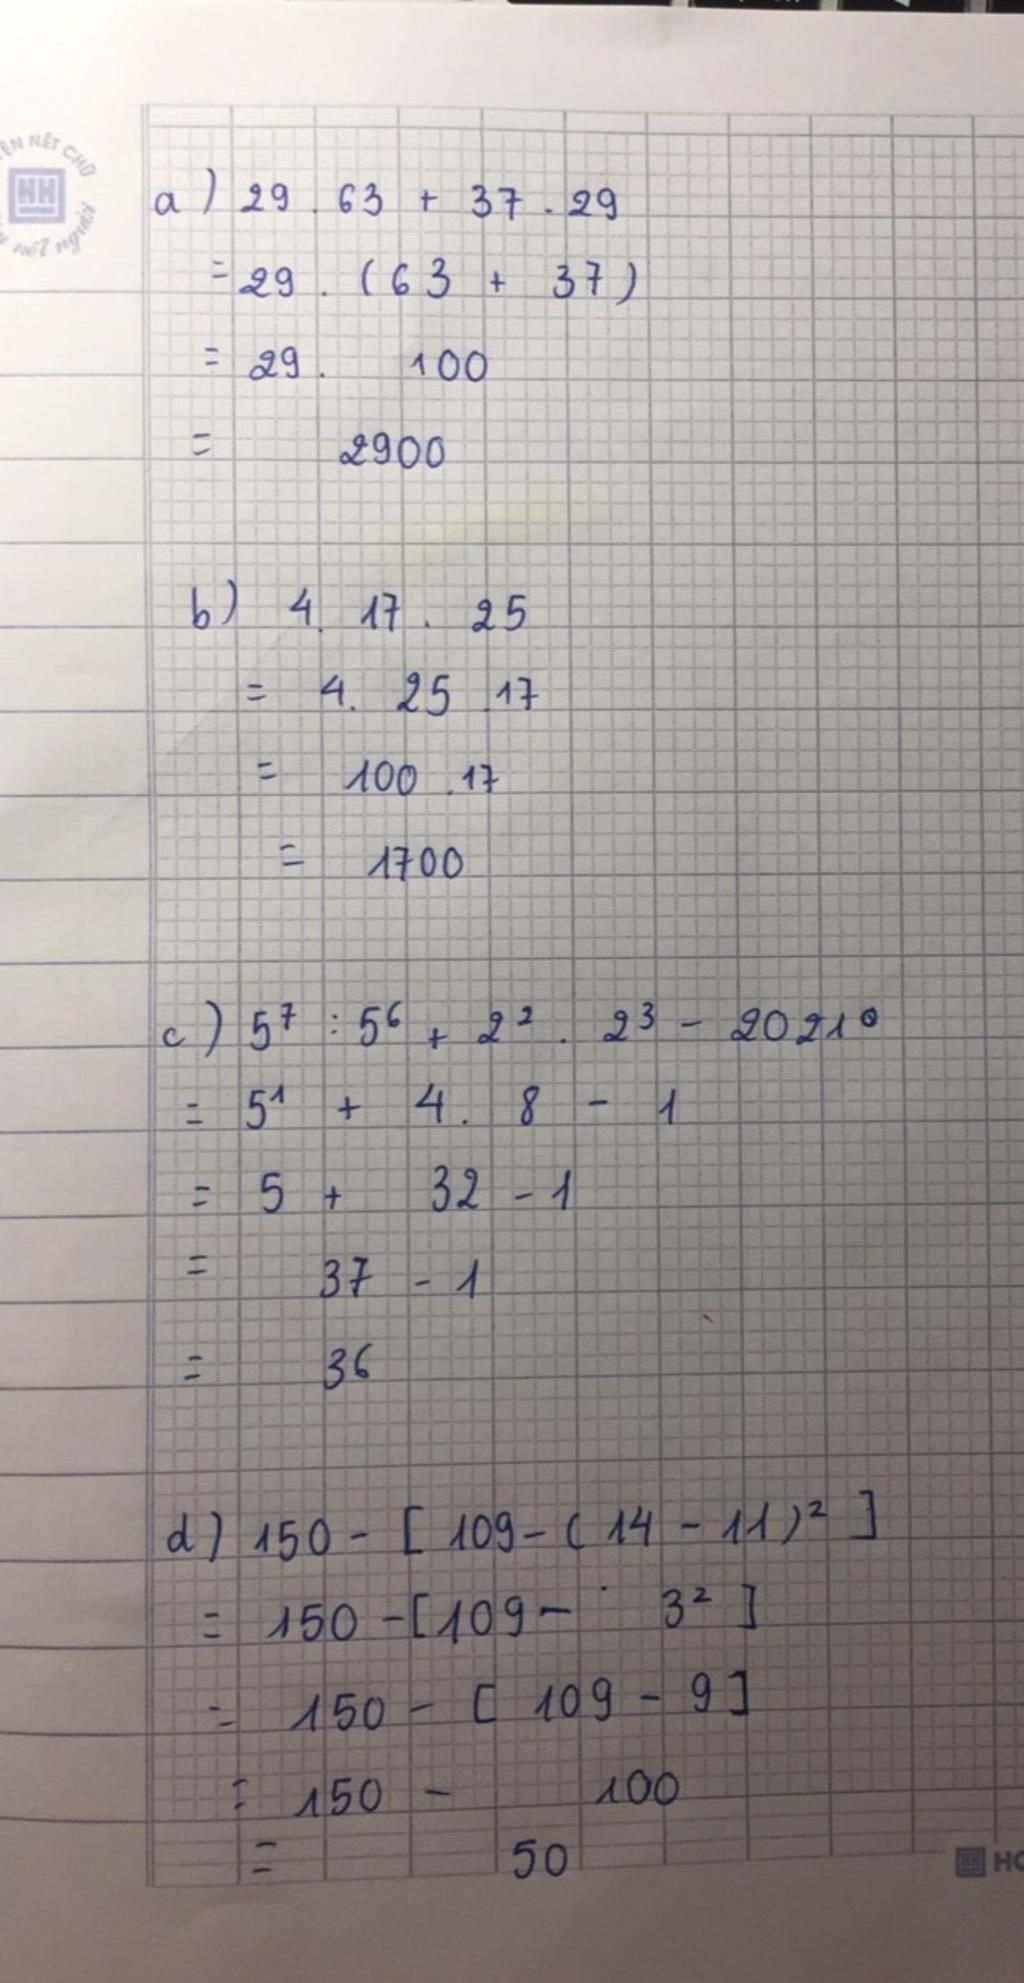 LUYỆN NÉT CHỮ
HH
nết người
a) 29 . 63 + 37 . 29
= 29 . (63 + 37)
= 29 . 100
= 2900
b) 4 . 17 . 25
= 4 . 25 . 17
= 100 . 17
= 1700
c) 5⁷ : 5⁶ + 2² . 2³ - 2021⁰
= 5¹ + 4 . 8 - 1
= 5 + 32 - 1
= 37 - 1
= 36
d) 150 - [ 109 - ( 14 - 11)² ]
= 150 - [109 - 3² ]
= 150 - [ 109 - 9]
= 150 - 100
= 50
HH